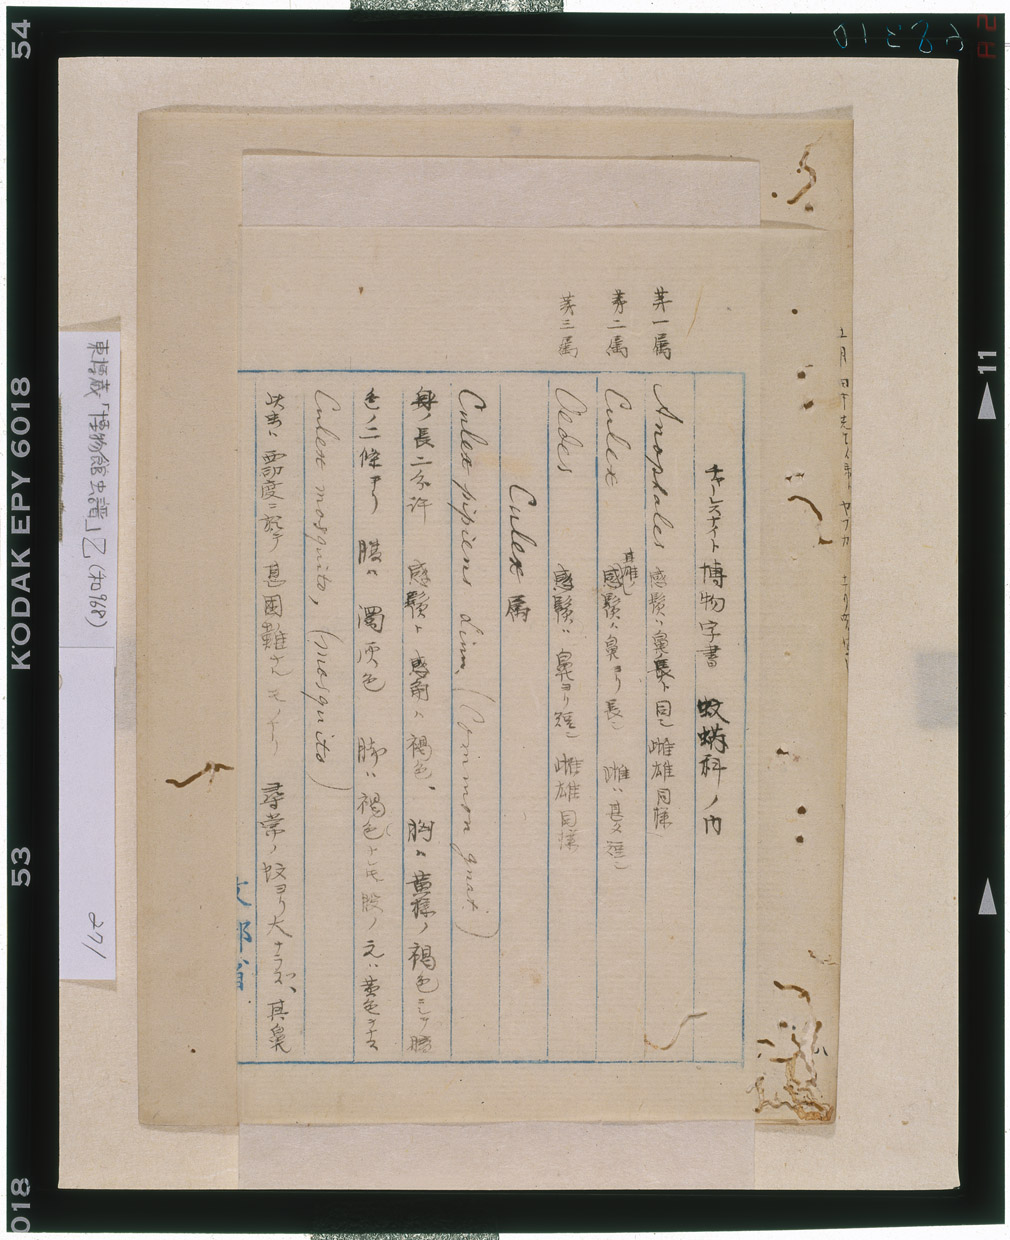 チャーレスナイト 博物字書 蚊蟒科ノ内
第一属 Anophales 感鬚ハ鼻ト長ト同シ 雌雄同様
第二属 Culex 其雄ノ感鬚ハ鼻ヨリ長シ 雌ハ甚タ短シ
第三属 Oedes 感鬚ハ鼻ヨリ短シ 雌雄同様
Culex 属
Culex pipiens Linn. (Common gnat)
身ノ長二分許 感鬚ト感角ハ褐色、胸ハ黄様ノ褐色ニシテ暗
色ノ二條アリ 腹ハ濁灰色 脚ハ褐色ナレモ股ノ元ハ黄色ナ
Culex mosquito, (mosquito)
此虫ハ 於テ甚困難ナルモノナリ 尋常ノ蚊ヨリ大ナラズ、其鼻
文部省
東博蔵「博物館虫譜」乙(和968)
271
KODAK EPY 6018
54
53
11
018